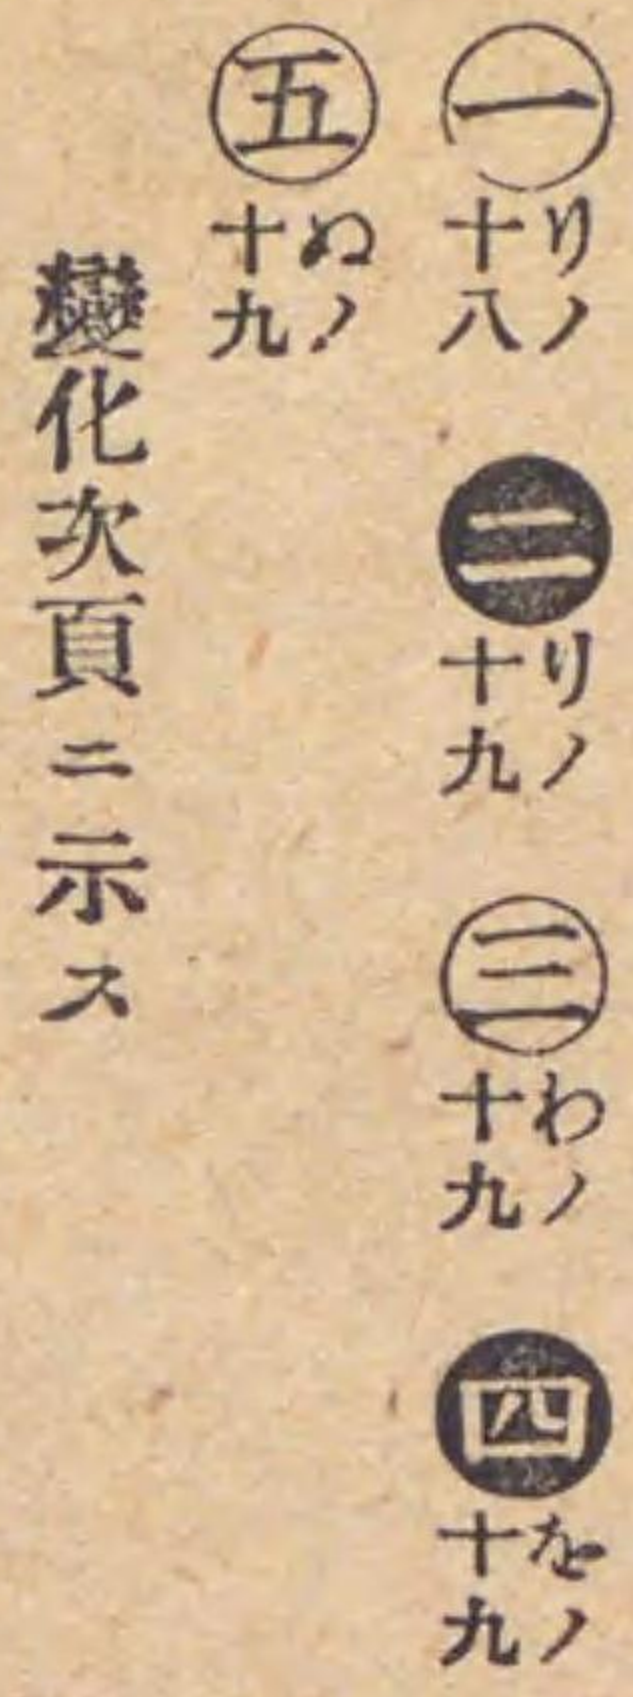 一 りノ十八 二 りノ十九 三 わノ十九 四 をノ十九
五 ぬノ十九
變化次頁ニ示ス